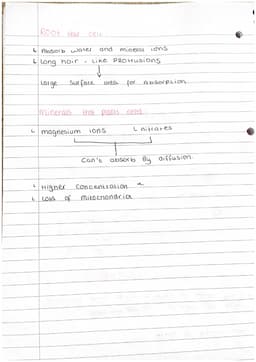 Root hair cell
↳ Absorb water and mineral ions
↳ Long hair - like protrusions
↓
large surface area for absorption
Minerals that plants need
↳ magnesium ions ↳ nitrates
Can't absorb By diffusion
↳ Higher concentration
↳ Lots of mitochondria